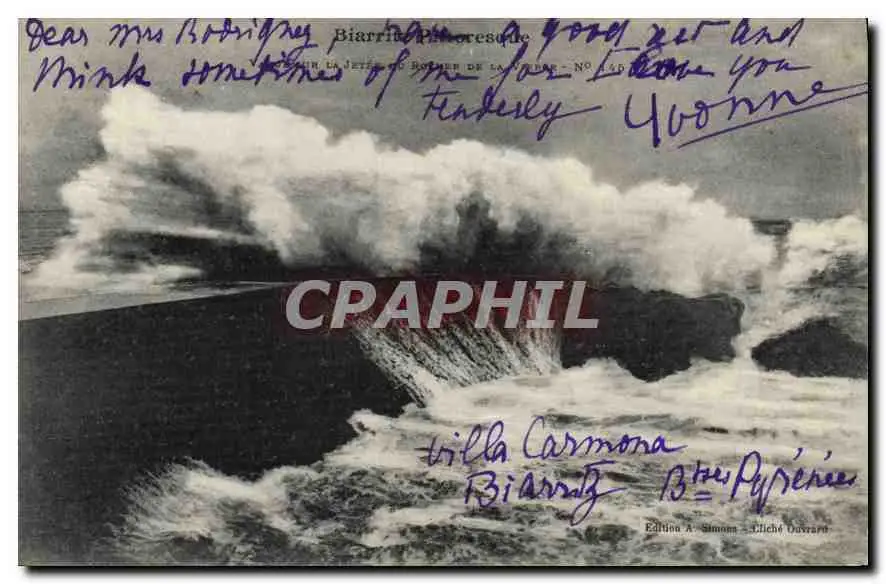 Biarritz Pittoresque
Vague sur la Jetée du Rocher de la Vierge - No 145
Dear Mrs Rodriguez, have a good rest and
think sometimes of me for I love you
tenderly Yvonne
CPAPHIL
Villa Carmona
Biarritz Bses Pyrénées
Edition A. Simons - Cliché Ouvrard